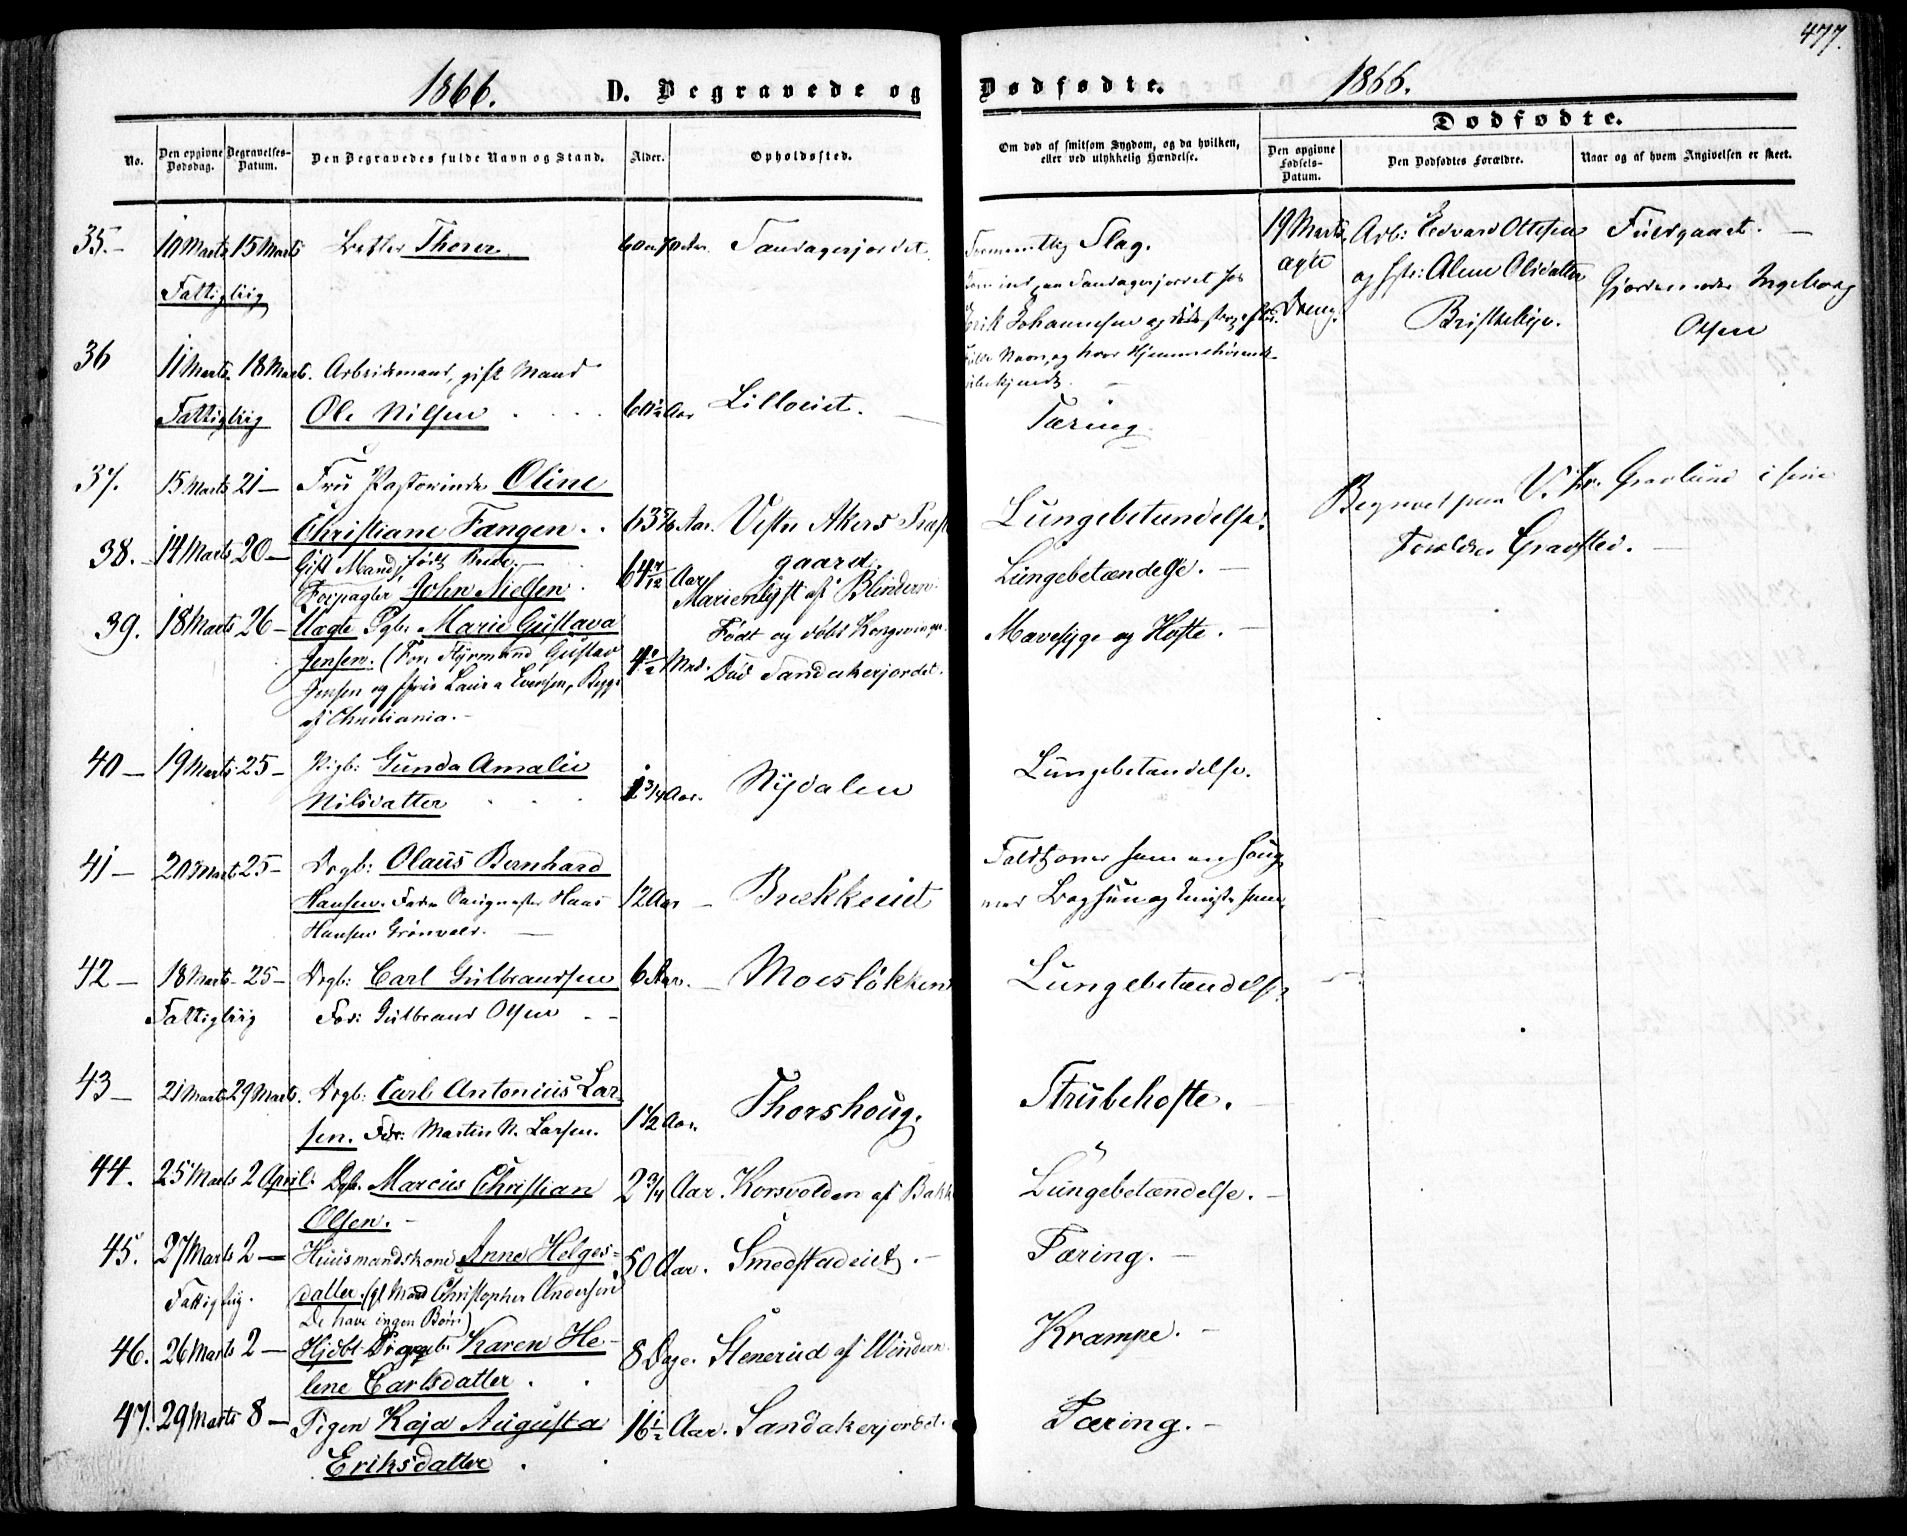 477.
1866. D. Begravede og Dødfødte. 1866.
Dødfødte.
No. Den opgivne Dødsdag. Begravelses-Datum. Den Begravedes fulde Navn og Stand. Alder. Opholdssted. Om død af smitsom Sygdom, og da hvilken, eller ved ulykkelig Hændelse. Den opgivne Fødsels-Datum. Den Dødfødtes Forældre. Naar og af hvem Angivelsen er skeet.
35.- 10 Marts 15 Marts Betler Thorer. 60 a 70 Aar. Sandagerjordet. Formentlig Slag. 19 Marts Arb: Edvard Ottesen Fuergaaet. -
Fattiglig Kom ind paa Sandagerjordet hos ægte og Hstr: Aline Olsdatter Gjordemoder Ingeborg
Erik Johannesen og døde strax efter. Dreng. Briskebye. Olsen
Navn, og hvor hjemmehørende
ubekjendt. -
36 11 Marts. 18 Marts. Arbeidsmand, gift Mand
Fattiglig Ole Nilsen 60 1/2 Aar Lilloeiet. - Tæring.
37. 15 Marts 21- Fru Pastorinde Oline
Christiane Fangen.. 63 5/6 Aar. Vestre Akers Præste- Lungebetændelse. Begravet paa V. Kr. Gravlund i sine
født Brede. gaard. Forældres Gravsted. -
38. - 14 Marts 20- Gift Mand,
Forpagter John Nielsen. 64 7/12 Aar Marienlyst af Blindern. Lungebetændelse. -
39. 18 Marts 26- Uægte Pgb. Marie Gustava Født og døbt Kongsvinger. Mavesyge og Hoste. -
Jensen. (For. Styrmand Gustav 4 1/2 Mnd. Død Sandakerjordet.
Jensen og Pige Laura Evensen, Begge
af Christiania. -
40 - 19 Marts 25- Pigb: Gunda Amalie
Nilsdatter 1 3/4 Aar. Nydalen Lungebetændelse.
41 - 20 Marts 25- Drgb: Olaus Bernhard Faldt over ham en Haug
Hansen. Fader Hans 12 Aar - Brekkeeiet med
Hansen Grønvold. -
42 - 18 Marts- 25- Drgb: Carl Gulbrandsen 6 Aar. - Moesløkken Lungebetændelse
Fattiglig For: Gulbrand Olsen - -
43 - 21 Marts 29 Marts. Drgb: Carl Antonius Lar-
sen. For: Martin N. Larsen. 1 1/2 Aar. Thorshoug. Strubehoste.
44. 25 Marts 2 April. Dgb. Marcius Christian 2 3/4 Aar. Korsvolden af Bakke Lungebetændelse. -
Olsen. -
45. 27 Marts 2 - Huusmandskone Anne Helges- 50 Aar. Smedstadeiet. - Tæring. -
Fattiglig. datter. (gl Mand Christopher Andersen
De have ingen Børn)
46. 26 Marts 2 - Hjdbt Pigeb. Karen He- 8 Dage. Stenerud af Vinderen. Krampe. -
lene Carlsdatter.
47. 29 Marts 8 - Pigen Kaja Augusta 16 1/2 Aar. Sandakerjordet. Tæring. -
Eriksdatter